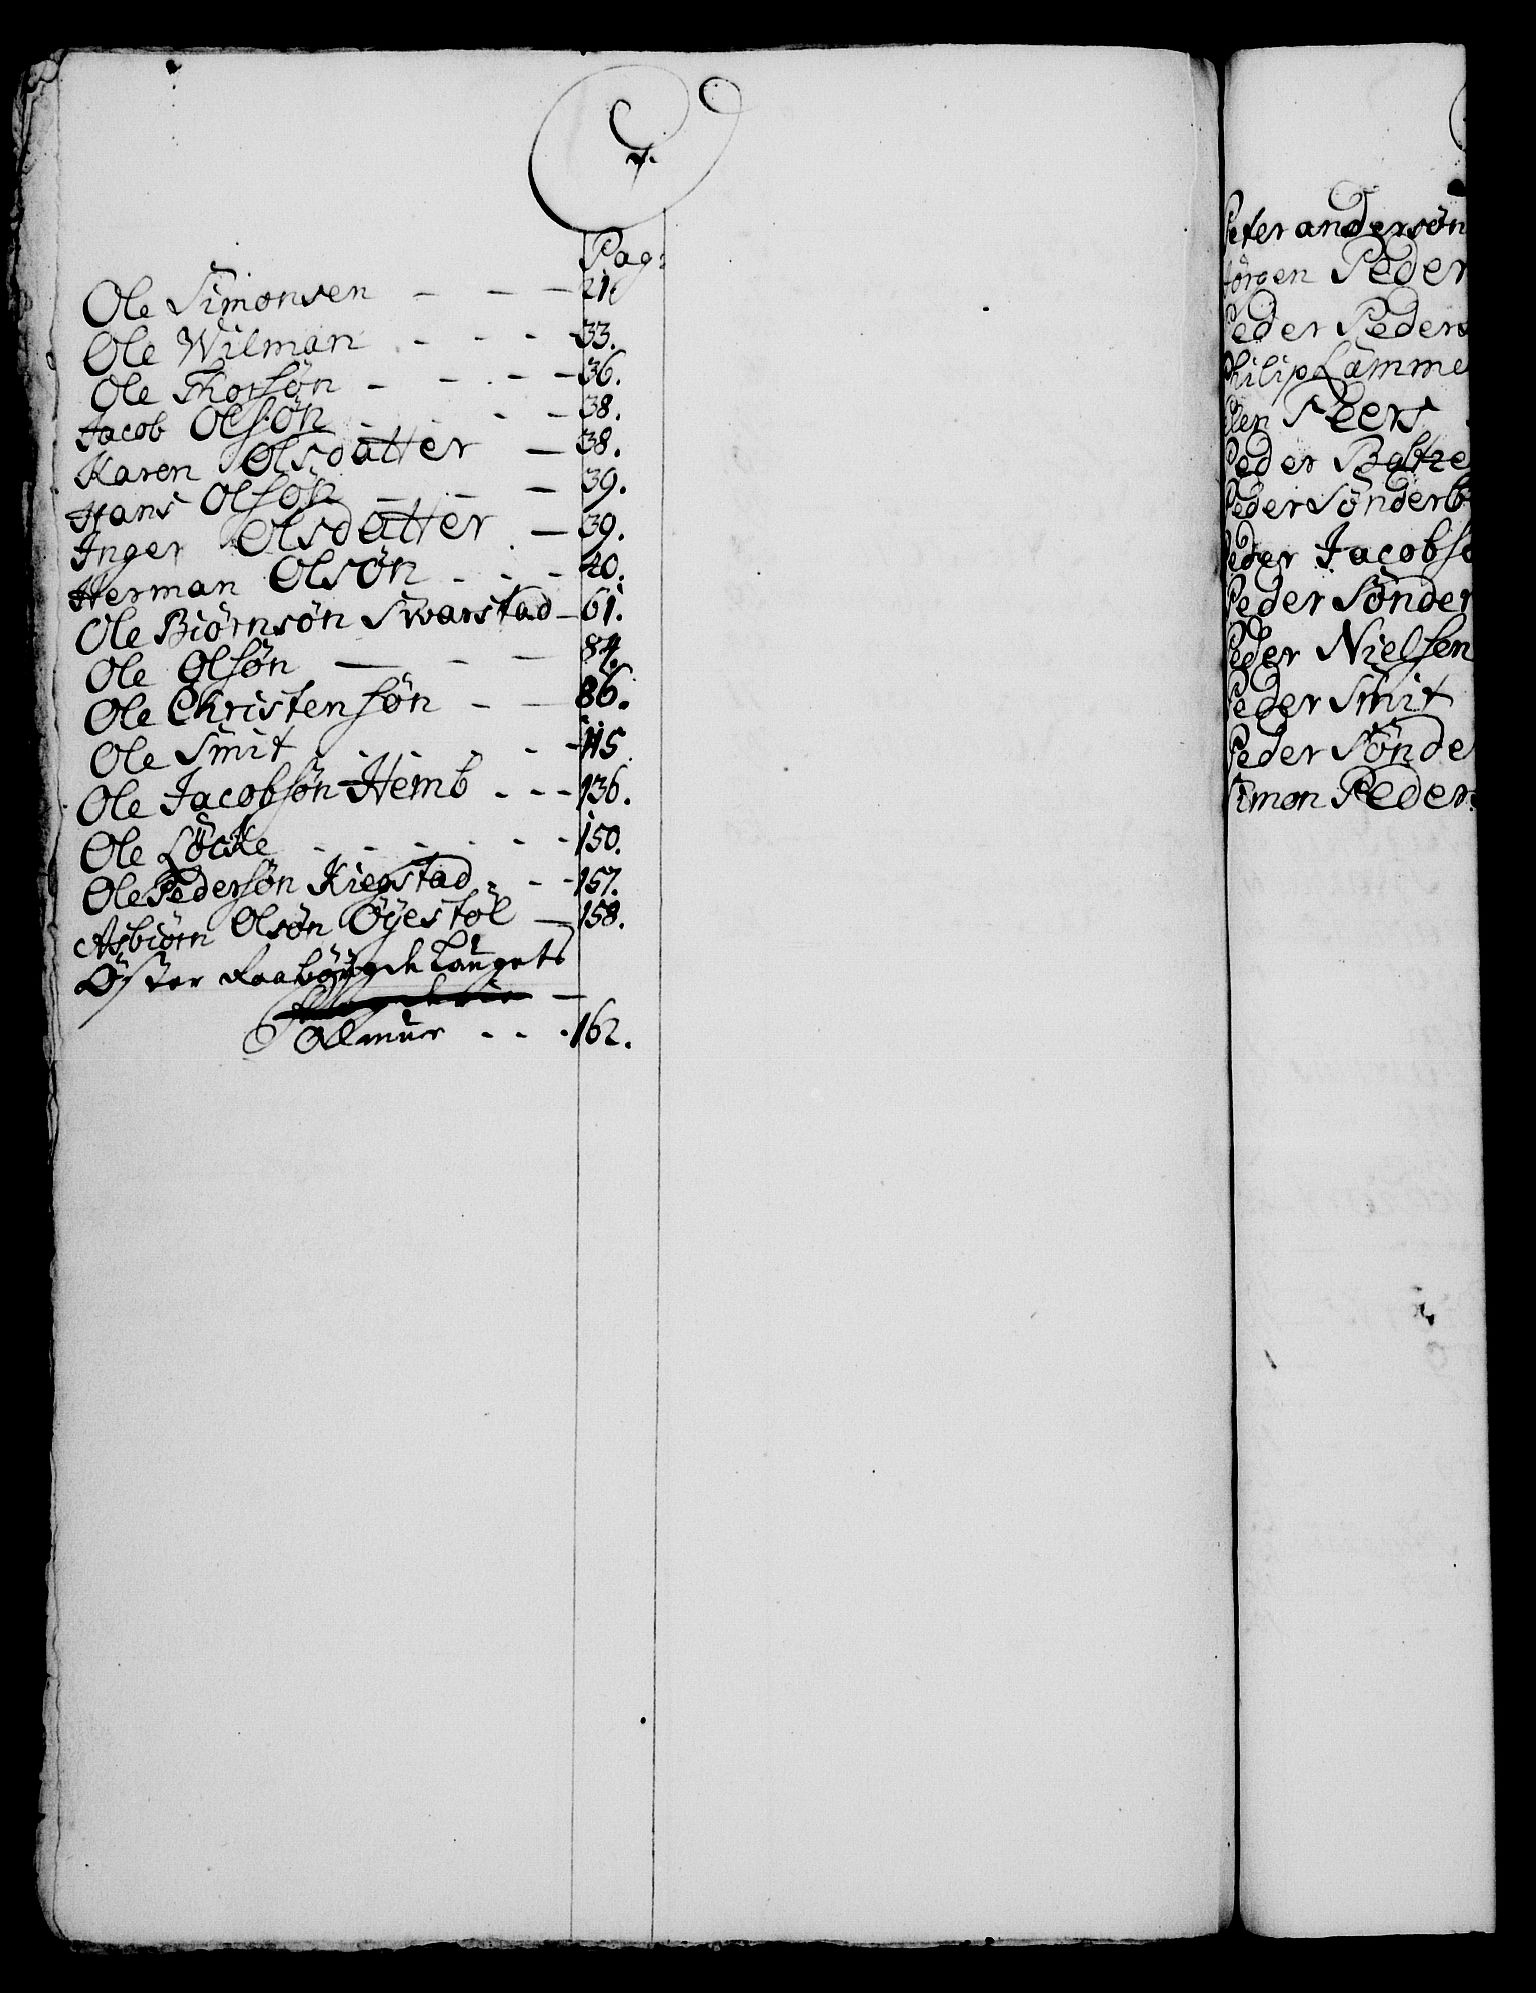 Pag:
Ole Simonsen - - - 21.
Ole Wilman - - - 33.
Ole Thorsøn - - - 36.
Jacob Olsøn - - - 38.
Karen Olsdatter - 38.
Hans Olsøn - - - 39.
Inger Olsdatter - 39.
Herman Olsøn - - - 40.
Ole Biørnsøn Swarstad - 61.
Ole Olsøn - - - 84.
Ole Christensøn - - 86.
Ole Smit - - - 115
Ole Jacobsøn Hemb - - - 136.
Ole Löcke - - - 150.
Ole Pedersøn Kiegstad - - 157.
Asbiørn Olsøn Öyestøl - 158.
Öster Raabÿgde Laugets
Allmur - - - 162.
Peter andersøn
Jörgen Peder
Peder Peders
Philip Lamme
Peers
Peder Baltze
Peder Sønderb
Peder Jacobsø
Peder Sønder
Peder Nielsen
Peder Smit
Peder Sønde
Simon Peders